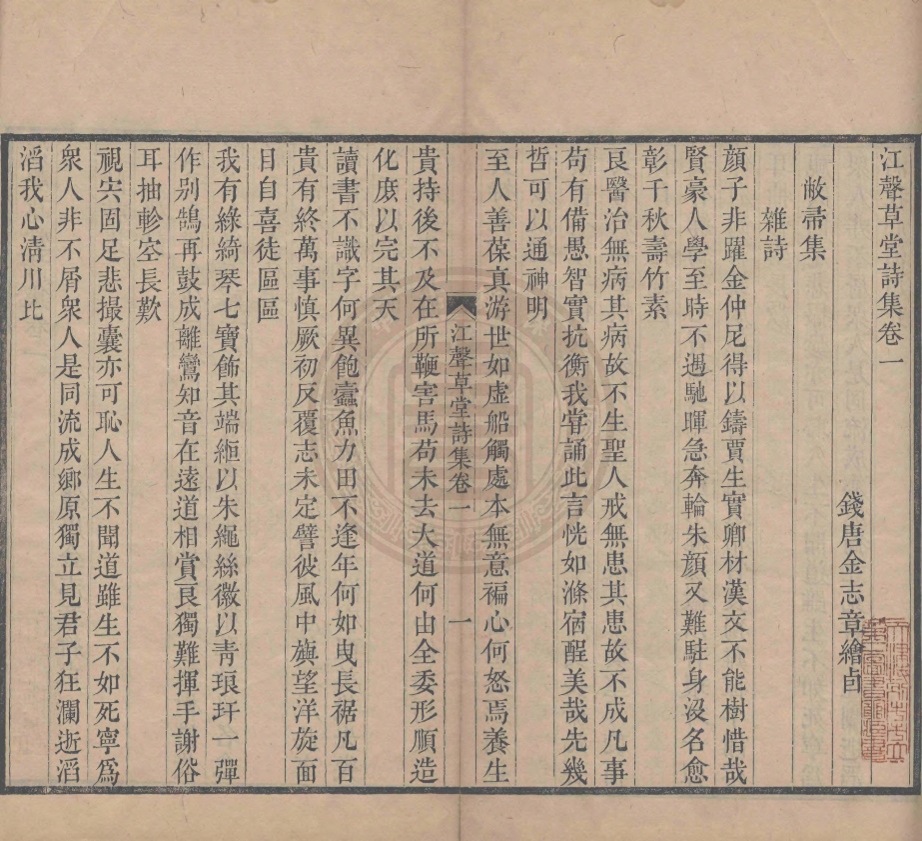 江聲草堂詩集卷一
錢唐金志章繪卣
敝帚集
雜詩
顏子非躍金仲尼得以鑄賈生實卿材漢文不能樹惜哉
賢豪人學至時不遇馳暉急奔輪朱顏又難駐身沒名愈
彰千秋壽竹素
良醫治無病其病故不生聖人戒無患其患故不成凡事
苟有備愚智實抗衡我嘗誦此言恍如滌宿酲美哉先幾
哲可以通神明
至人善葆真游世如虛船觸處本無意褊心何怒焉養生
江聲草堂詩集卷一 一
貴持後不及在所鞭害馬苟未去大道何由全委形順造
化庶以完其天
讀書不識字何異飽蠹魚力田不逢年何如曳長裾凡百
貴有終萬事慎厥初反覆志未定譬彼風中旟望洋旋面
目自喜徒區區
我有綠綺琴七寶飾其端絙以朱繩絲徽以青琅玕一彈
作別鵠再鼓成離鸞知音在遠道相賞良獨難揮手謝俗
耳抽軫空長歎
視宍固足悲撮囊亦可恥人生不聞道雖生不如死寧為
眾人非不屑眾人是同流成鄉原獨立見君子狂瀾逝滔
滔我心清川比